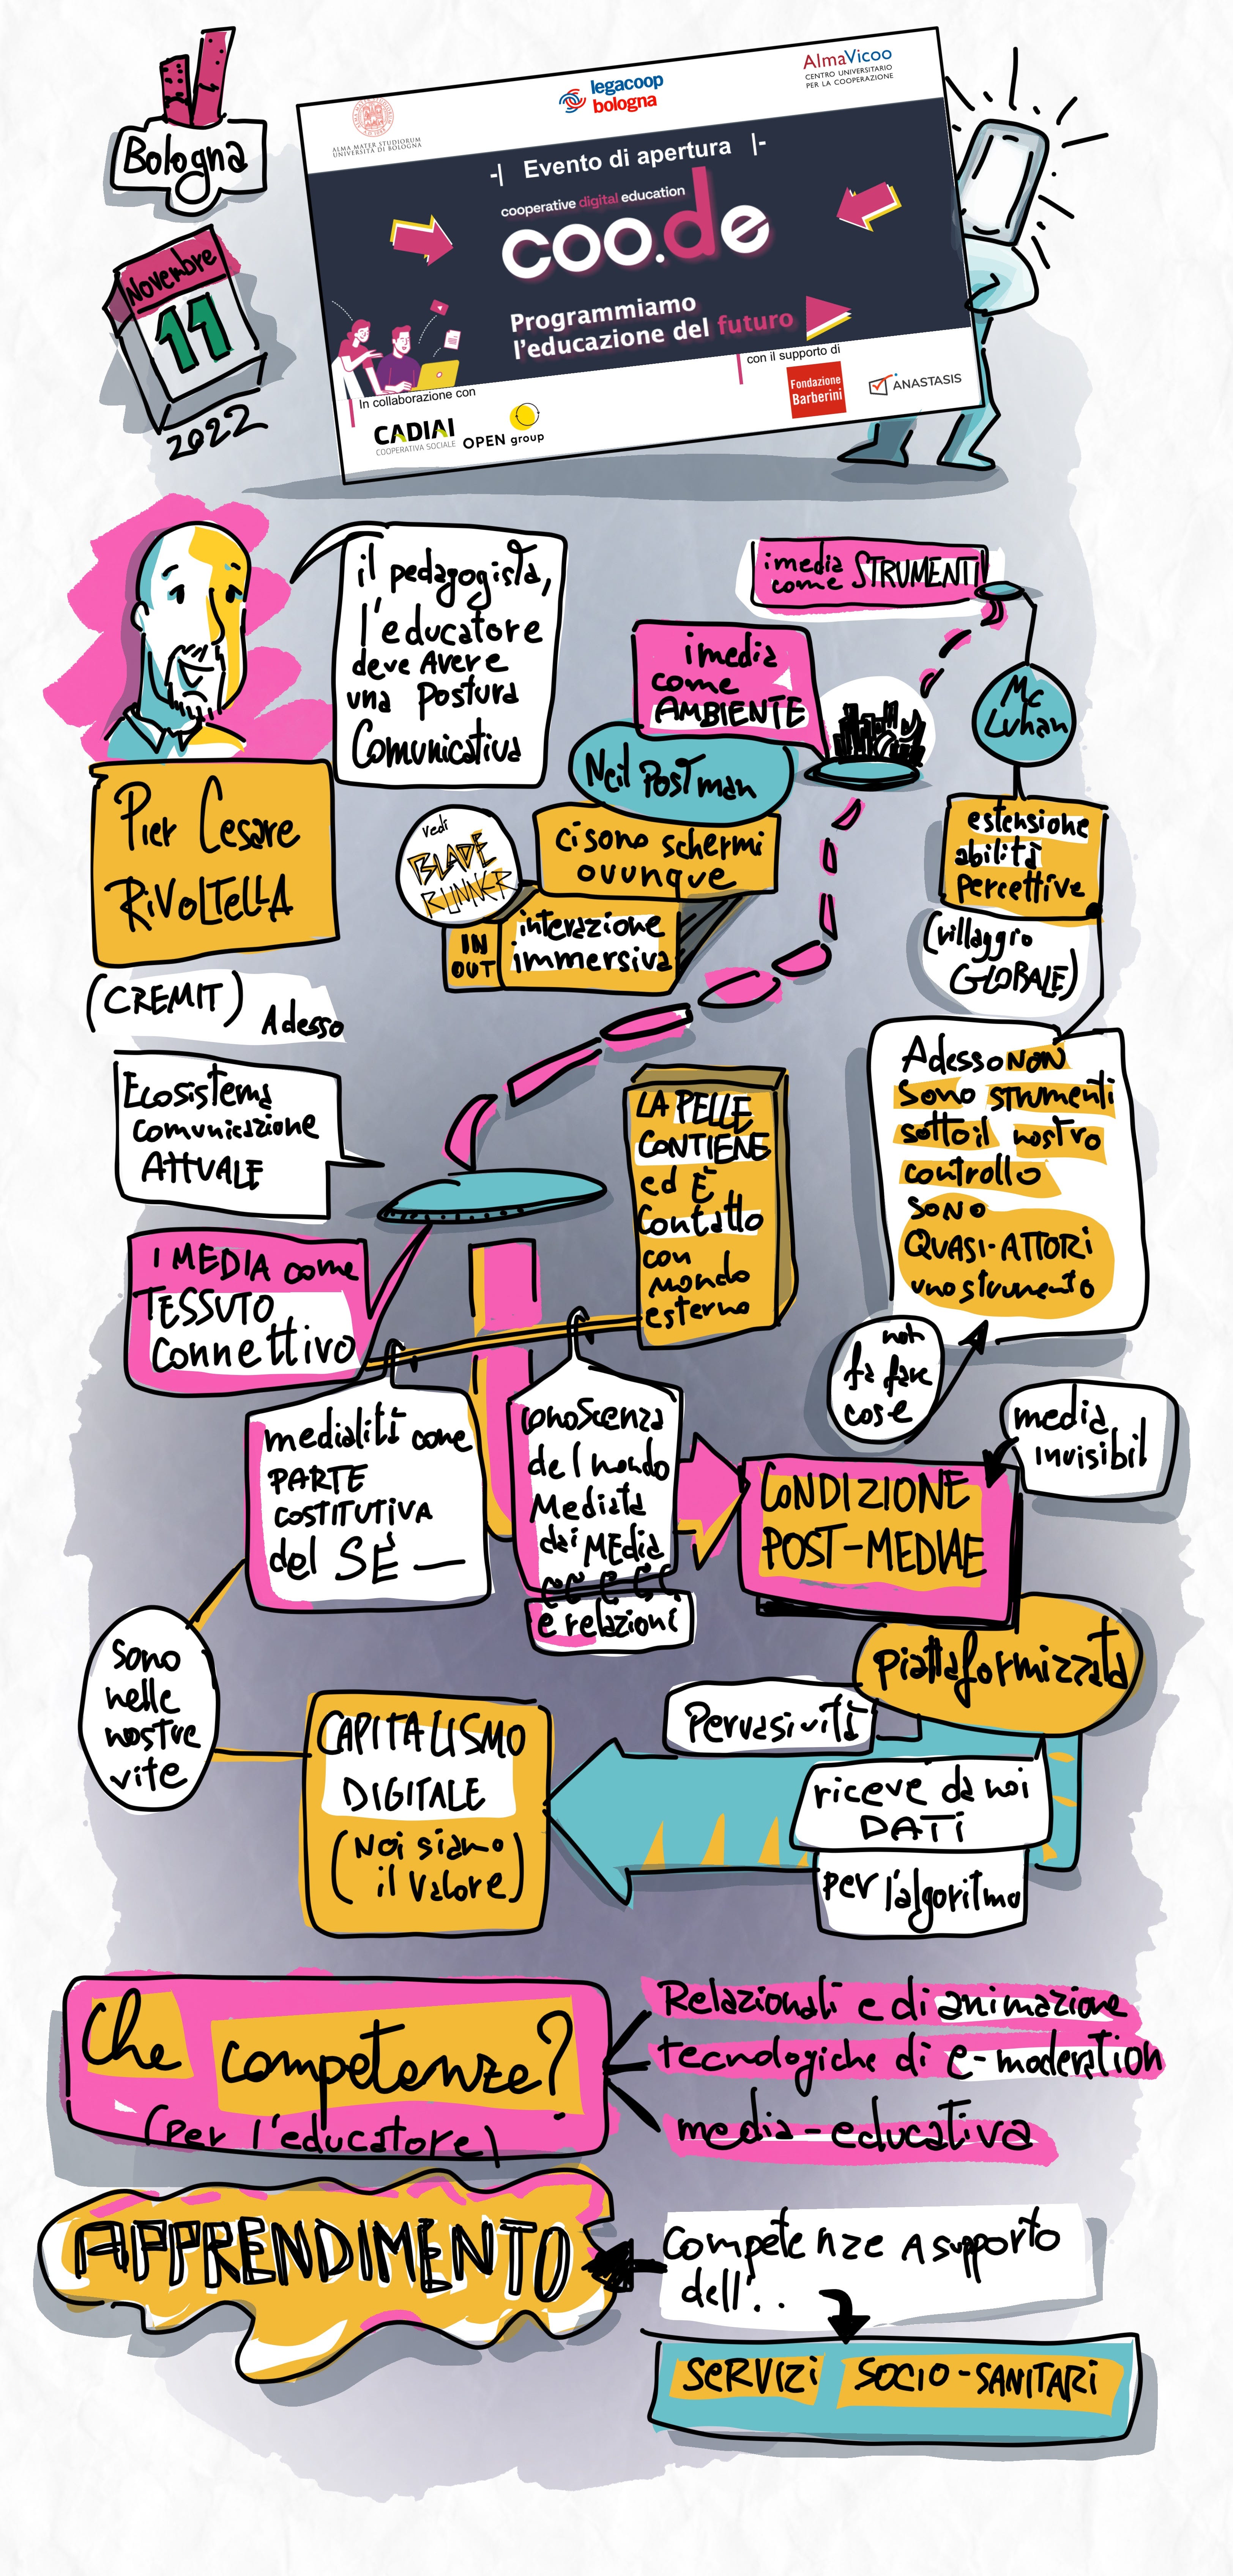 Bologna
Novembre
11
2022
ALMA MATER STUDIORUM
UNIVERSITÀ DI BOLOGNA
legacoop
bologna
AlmaVicoo
CENTRO UNIVERSITARIO
PER LA COOPERAZIONE
-| Evento di apertura |-
cooperative digital education
coo.de
Programmiamo
l'educazione del futuro
In collaborazione con
CADIAI
COOPERATIVA SOCIALE
OPEN group
con il supporto di
Fondazione
Barberini
ANASTASIS
il pedagogista,
l'educatore
deve AVERE
una Postura
Comunicativa
Pier Cesare
RIVOLTELLA
(CREMIT)
Adesso
i media
come STRUMENTI
Mc
Luhan
estensione
abilità
percettive
(villaggio
GLOBALE)
Adesso NON
sono strumenti
sotto il nostro
controllo
SONO
QUASI-ATTORI
uno strumento
non
fa fare
cose
i media
come
AMBIENTE
Neil Postman
ci sono schermi
ovunque
vedi
BLADE
RUNNER
IN
OUT
interazione
immersiva
Ecosistema
comunicazione
ATTUALE
I MEDIA come
TESSUTO
Connettivo
LA PELLE
CONTIENE
ed È
Contatto
con
mondo
esterno
medialità come
PARTE
COSTITUTIVA
del SÉ —
conoscenza
del mondo
Mediata
dai MEdia
e relazioni
CONDIZIONE
POST-MEDIAE
media
invisibil
piattaformizzata
Pervasività
riceve da noi
DATI
per l'algoritmo
CAPITALISMO
DIGITALE
(Noi siamo
il valore)
sono
nelle
nostre
vite
Che competenze?
(Per l'educatore)
Relazionali e di animazione
tecnologiche di e-moderation
media-educativa
APPRENDIMENTO
Competenze A supporto
dell'..
SERVIZI SOCIO-SANITARI